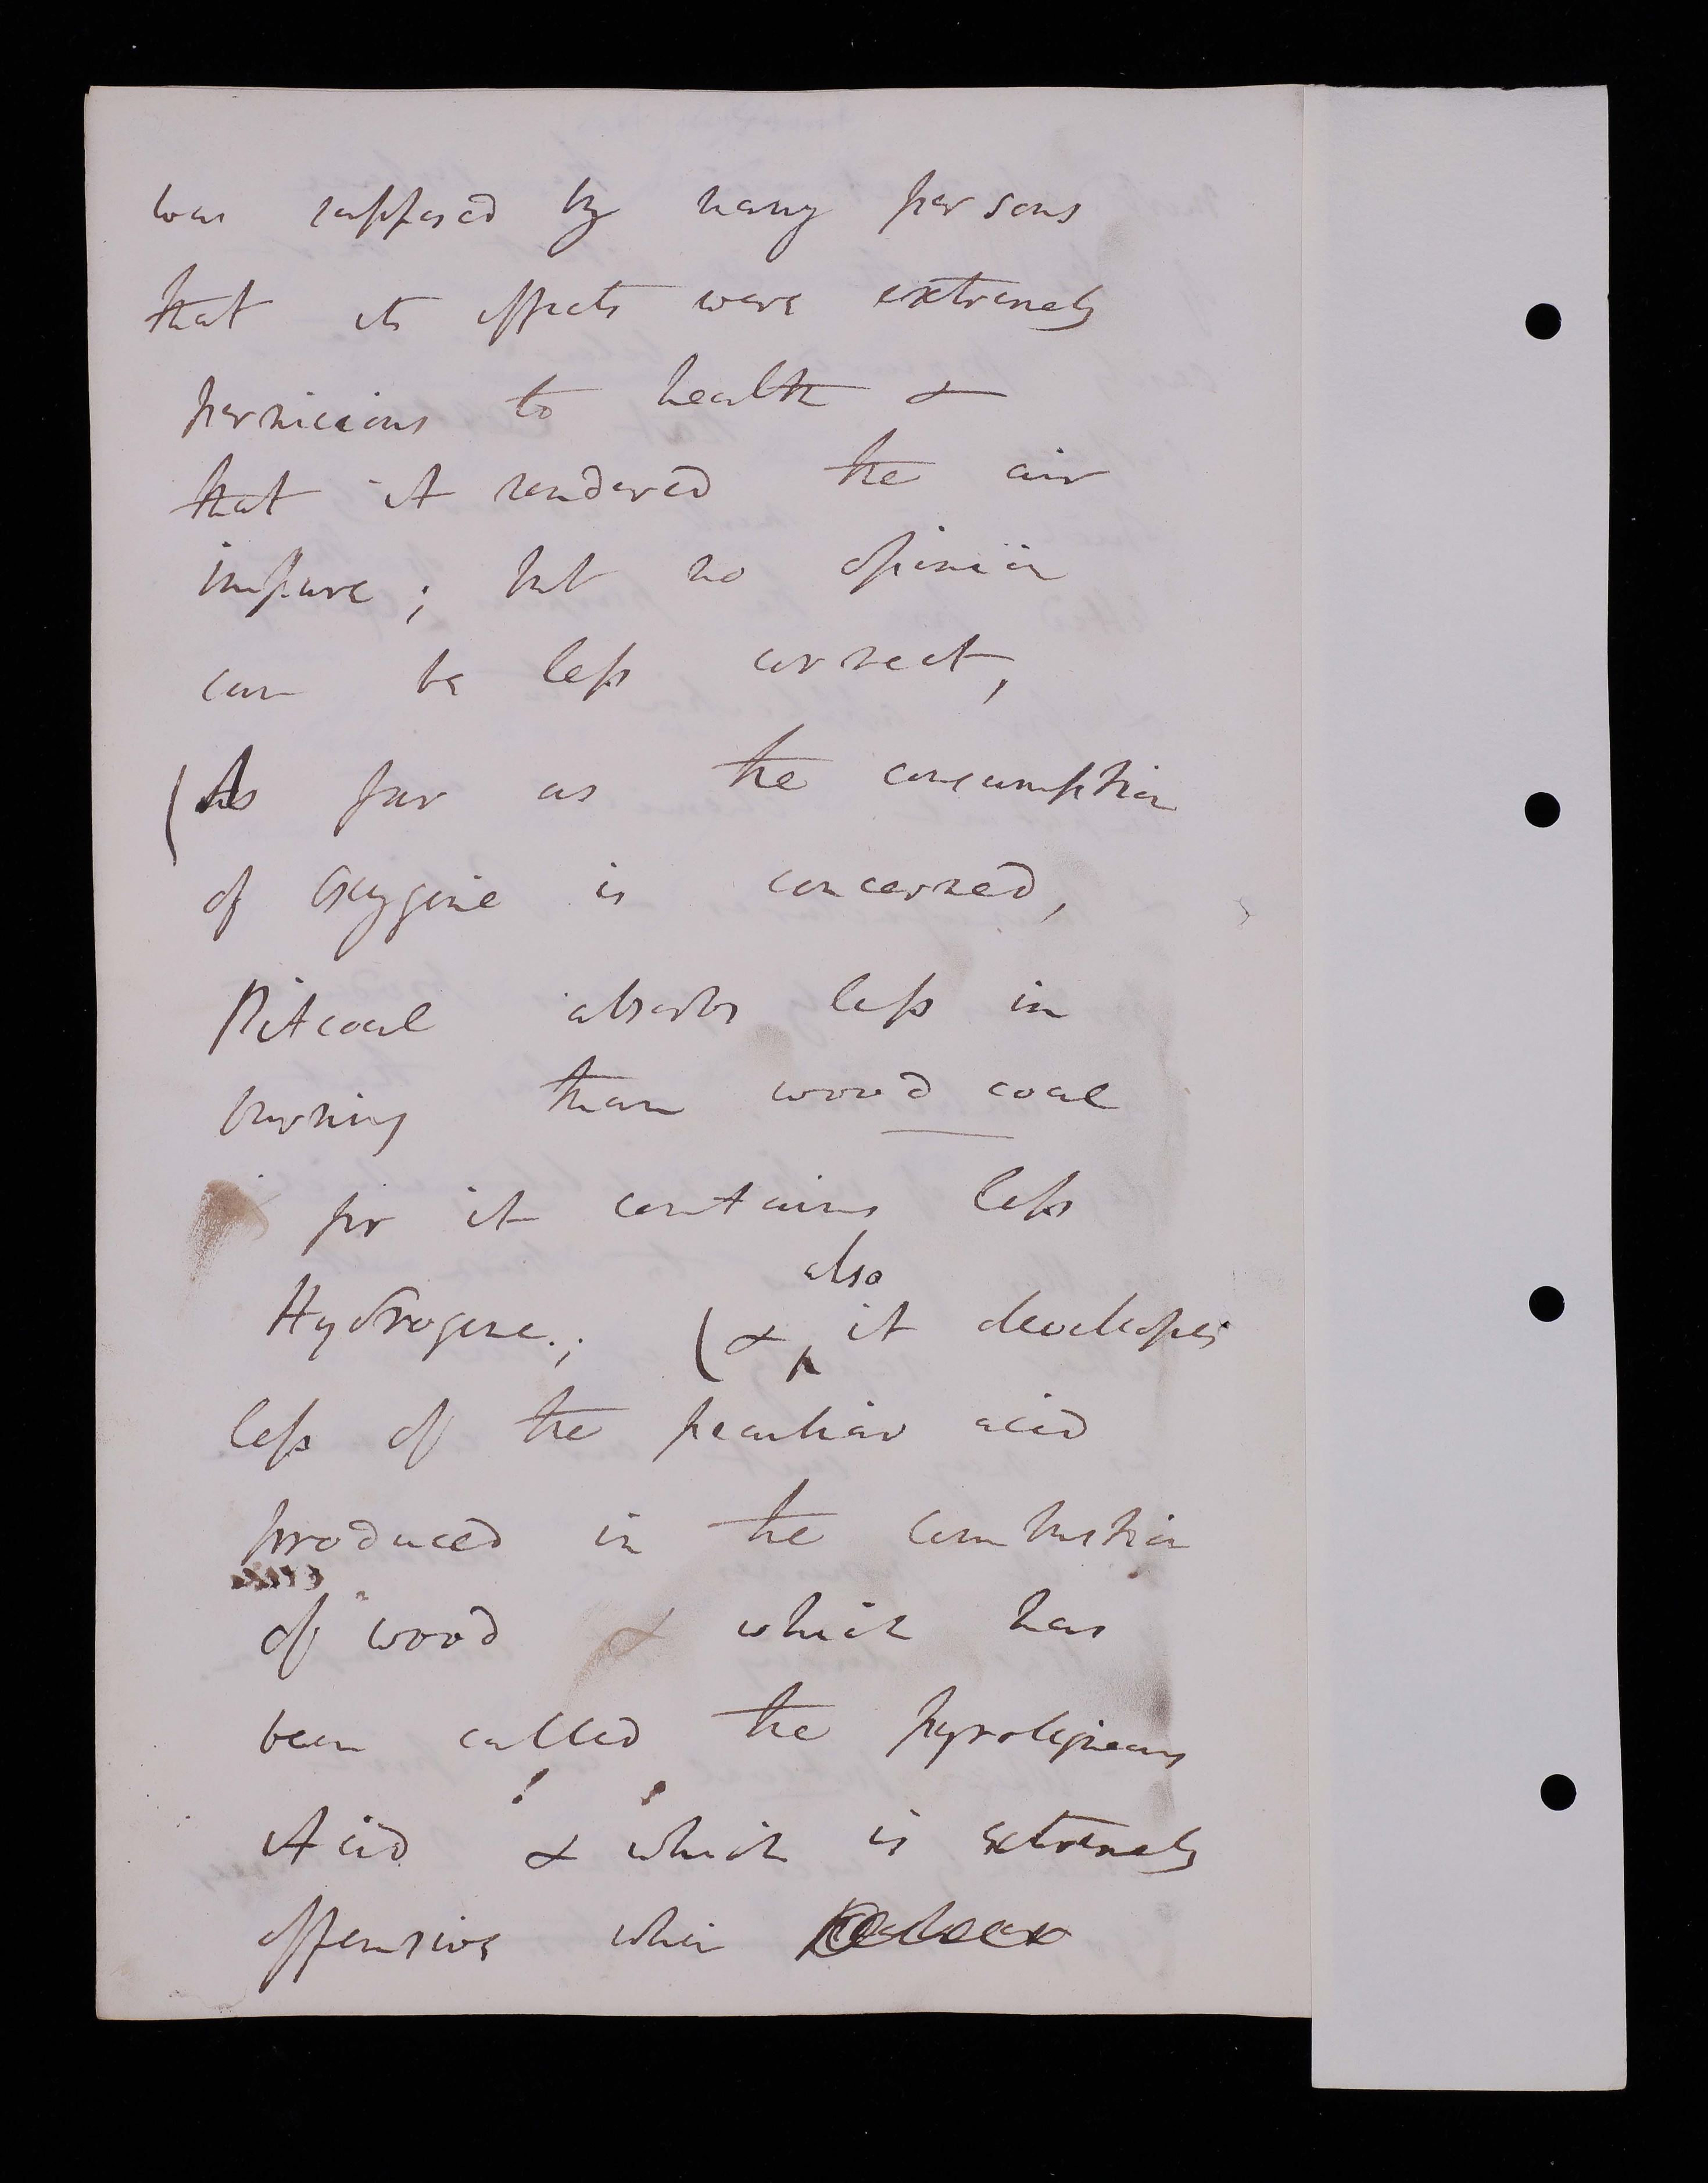 was supposed by many persons
that its effects were extremely
pernicious to health &
that it rendered the air
impure; but no opinion
can be less correct,
(As far as the consumption
of Oxygene is concerned,
Pitcoal absorbs less in
burning than wood coal
for it contains less
also
Hydrogene.; (& it developes
less of the peculiar acid
produced in the combustion
of wood & which has
been called the pyroligneous
Acid & which is extremely
offensive when